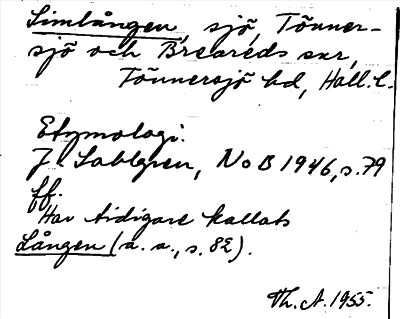 Simlången, sjö, Tönner-
sjö och Breareds snr,
Tönnersjö hd, Hall. l.
Etymologi:
J. Sahlgren, NoB 1946, s. 79
ff.
Har tidigare kallats
Lången (a. a., s. 82).
Th. A. 1955.